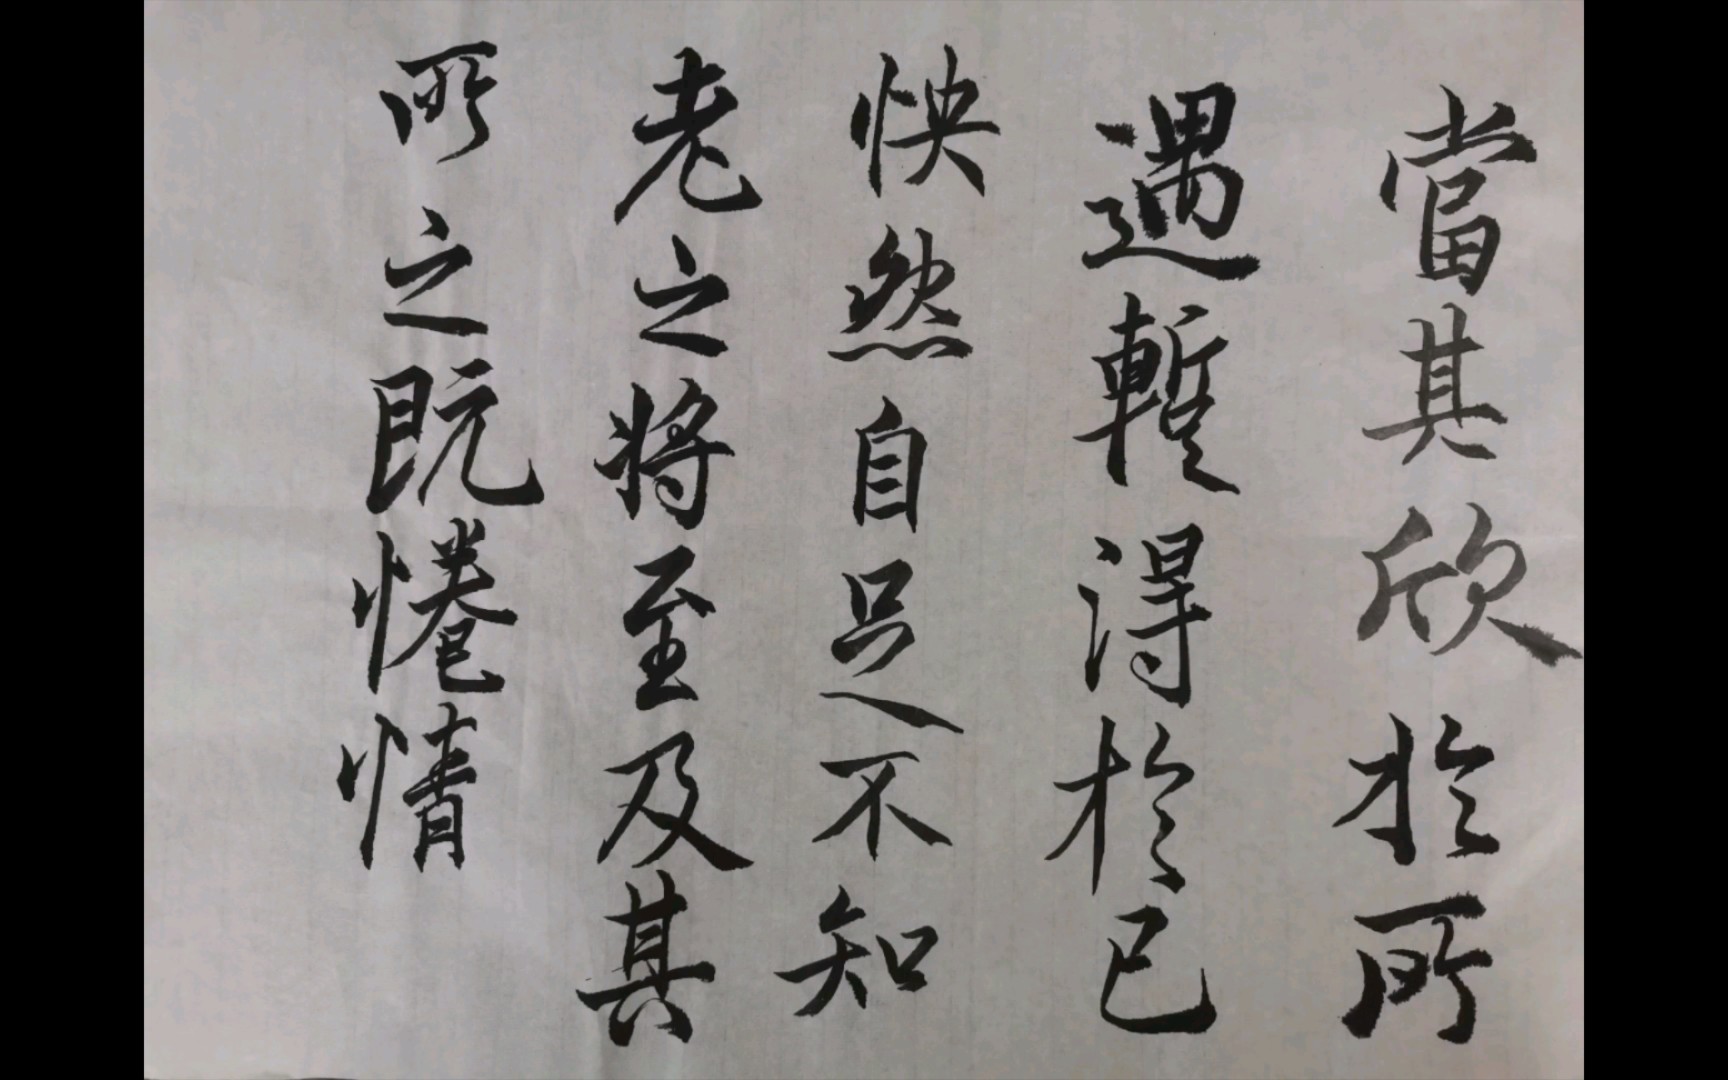 當其欣於所
遇暫得於己
怏然自足不知
老之將至及其
所之既惓情